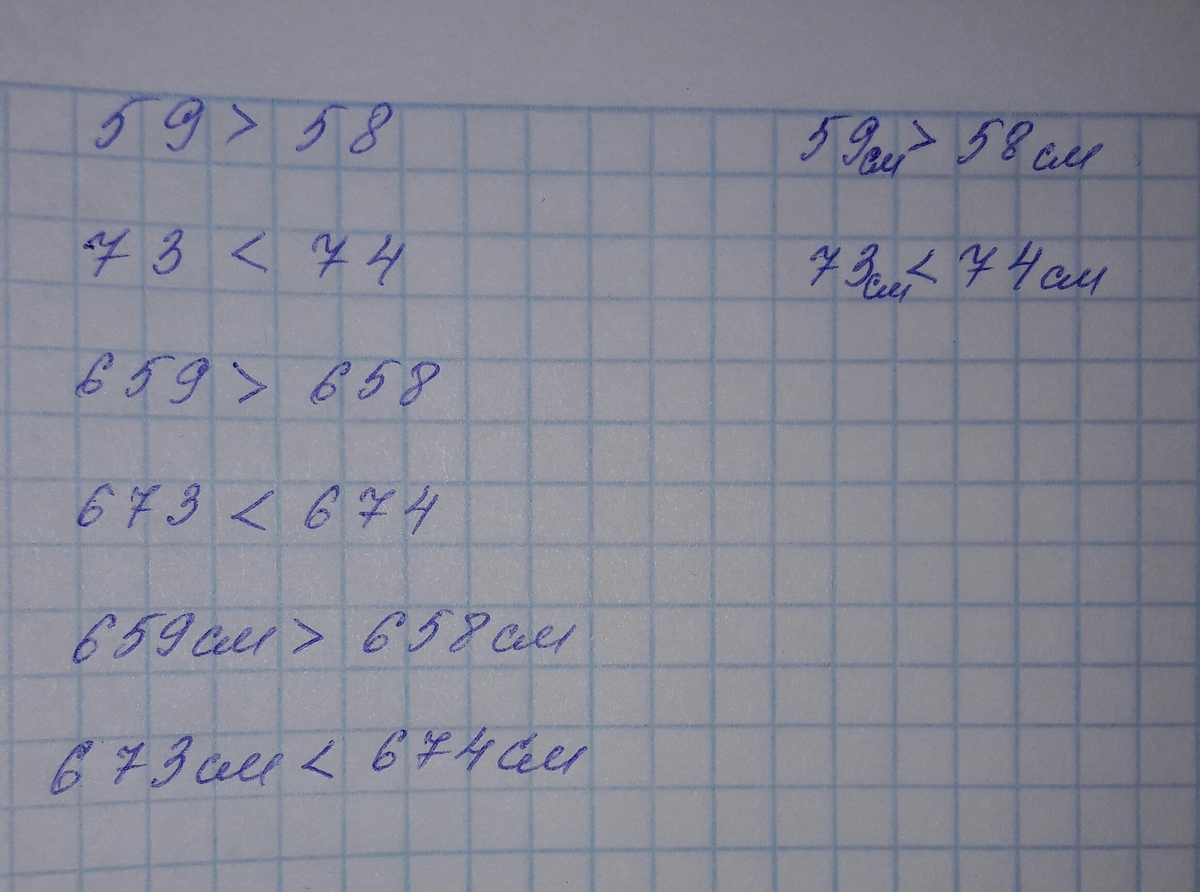 59 > 58
73 < 74
659 > 658
673 < 674
659см > 658см
673см < 674см
59см > 58см
73см < 74см